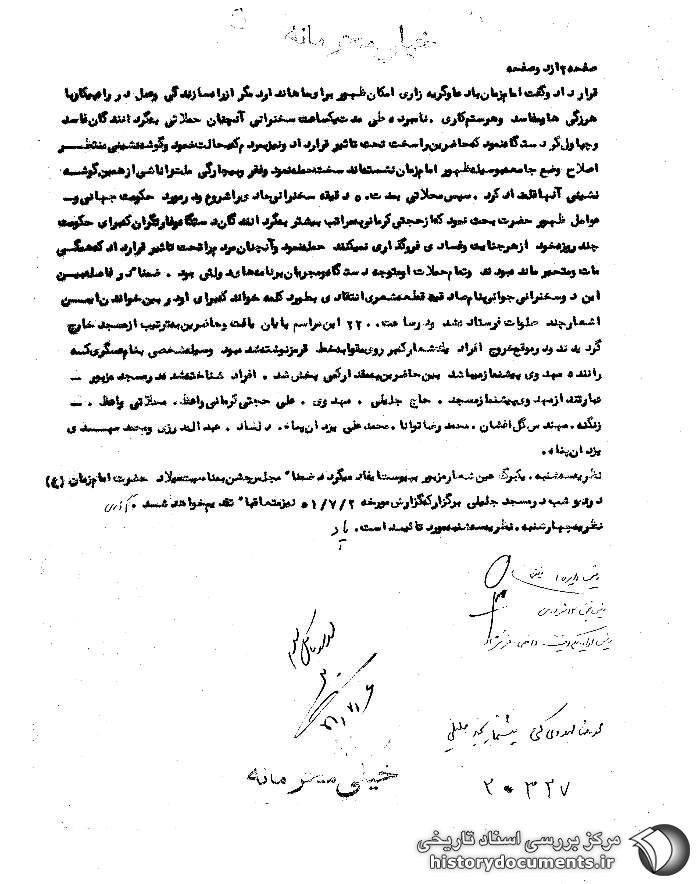 خیلی محرمانه
صفحه ۲ از دو صفحه
قرار داد وگفت امام زمان با دعا وگریه زاری امکان ظهور برا و ها ندارد مگر ازراه سازندگی وعمل در راه پیکار با
هرزگی ها ومفاسد وهرستم کاری . نامبرده طی مدت یکساعت سخنرانی آنچنان حملاتی بگردانندگان فاسد
وچپاولگر دستگاه نمود که حاضرین را سخت تحت تاثیر قرار داد ونیز بمردم که حالت نمود وگوشه نشینی منتظر
اصلاح وضع جامعه بوسیله ظهور امام زمان نشسته اند سخت حمله نمود وفقر وبیچارگی ملت را ناشی از همین گوشه
نشینی آنها قلمداد کرد . سپس محلاتی بمدت ۵۰ دقیقه سخنرانی حادی را شروع ودر مورد حکومت جهانی و
عوامل ظهور حضرت بحث نمود که از حجتی کرمانی بمراتب بیشتر بگردانندگان دستگاه وغارتگران که برای حکومت
چند روزه خود از هر جنایت وفسادی فروگذاری نمیکنند حمله نمود وآنچنان مردم را تحت تاثیر قرار داد که همگی
مات ومتحیر مانده بودند وتمام حملات او متوجه دستگاه ومجریان برنامه های دولتی بود . ضمنا" در فاصله بین
این دو سخنرانی جوانی بنام صادقی قطعه شعری انتقادی بطور دکلمه خواند که برای او در بین خواندن این
اشعار چند صلوات فرستاده شد ودر ساعت ۲۲۰۰ این مراسم پایان یافت وحاضرین به ترتیب از مسجد خارج
گردیدند ودر موقع خروج افراد یک شعار که بر روی مقوا به خط قرمز نوشته شده بود وسیله شخصی بنام عسگری که
راننده مهدوی پیشنماز میباشد بین حاضرین بمقدار کمی پخش شد . افراد شناخته شده در مسجد مزبور
عبارتند از مهدوی پیشنماز مسجد . حاج جلیلی . مهدوی . علی حجتی کرمانی واعظ . محلاتی واعظ .
زنگنه . مهندس گل افشان . محمد رضا توانا . محمد علی یزدان پناه . دلشاد . عبدالمرزی ومحمد مهدی
یزدان پناه .
نظریه سه شنبه . یکبرگ عین شعار مزبور به پیوست ایفاد میگردد ضمنا" مجلس جشن بمناسبت میلاد حضرت امام زمان (ع)
در دو شب در مسجد جلیلی برگزار که گزارش مورخه ۵۱/۷/۲ نیز متعاقبا" تقدیم خواهد شد . آذری
نظریه چهارشنبه . نظریه سه شنبه مورد تائید است . پاد
رئیس دایره
رئیس بخش
محمدرضا مهدوی کنی پیشنماز مسجد جلیلی
۲۰۳۲۷
خیلی محرمانه
مرکز بررسی اسناد تاریخی
historydocuments.ir